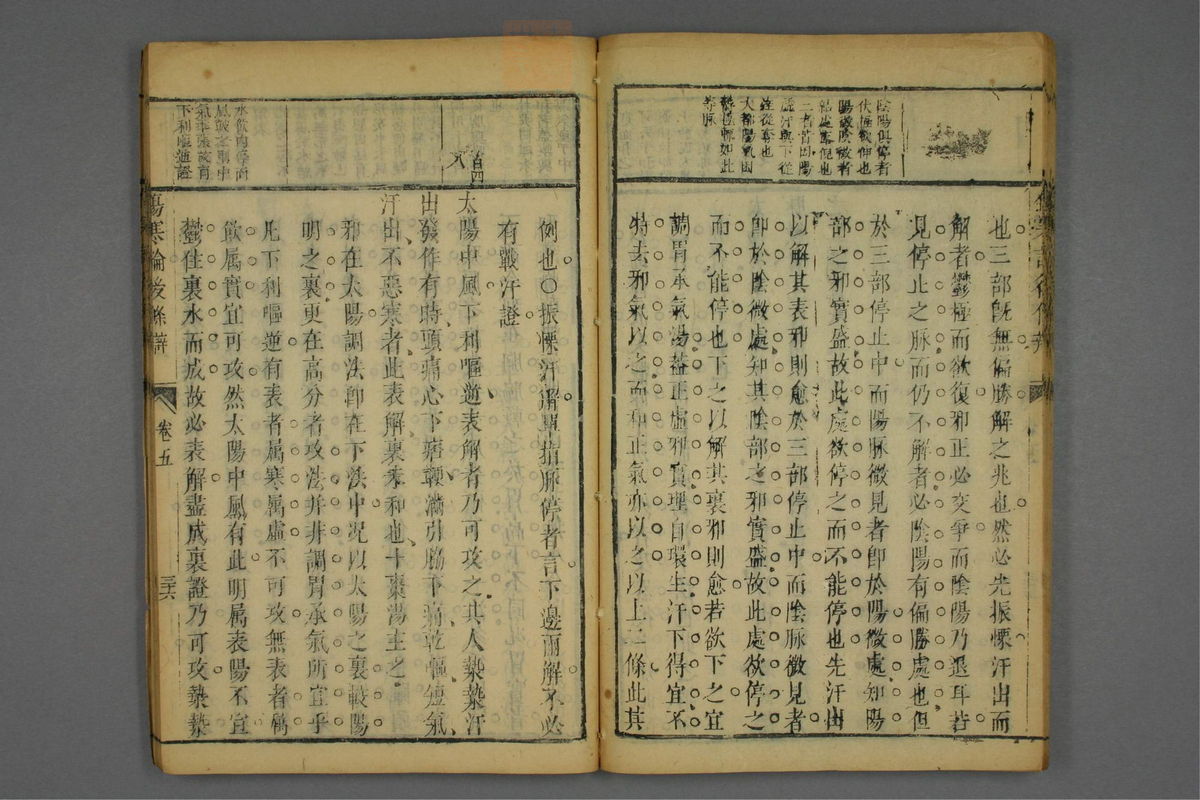 陰陽俱停者
伏極欲伸也
陽微陰微者
二者皆因陽
虛汗與下從
大都陽氣困
鬱極脉如此
也三部既無偏勝解之兆也然必先振慄汗出而
解者鬱極而欲復邪正必交爭而陰陽乃退耳若
見停止之脉而仍不解者必陰陽有偏勝處也但
於三部停止中而陽脉微見者即於陽微處知陽
部之邪實盛故此處欲停之而不能停也先汗出
以解其表邪則愈於三部停止中而陰脉微見者
即於陰微處知其陰部之邪實盛故此處欲停之
而不能停也下之以解其裏邪則愈若欲下之宜
調胃承氣湯蓋正虛邪實理自環生汗下得宜不
特去邪氣以之而和正氣亦以之以上二條此其
例也〇振慄汗解單指脉停者言下邊兩解不必
有戰汗證
百四
八
太陽中風下利嘔逆表解者乃可攻之其人漐漐汗
出發作有時頭痛心下痞鞕滿引脇下痛乾嘔短氣
汗出不惡寒者此表解裏未和也十棗湯主之
邪在太陽調法卽在下法中况以太陽之裏較陽
明之裏更在高分者攻法并非調胃承氣所宜乎
凡下利嘔逆有表者屬寒屬虛不可攻無表者屬
飲屬實宜可攻然太陽中風有此明屬表陽不宜
鬱住裏水而成故必表解盡成裏證乃可攻漐漐
水飲內停而
下利嘔逆證
傷寒論後條辯
卷五
三六